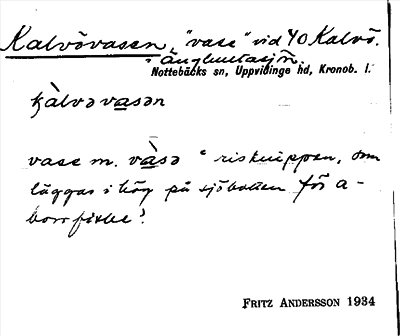 Kalvövasen, "vase" vid YO Kalvö.
i Änghultasjön.
Nottebäcks sn, Uppvidinge hd, Kronob. l.
kàlvəvasən
vase m. vàsə "risknippen, som
läggas i hög på sjöbotten för a-
borrfiske".
FRITZ ANDERSSON 1934